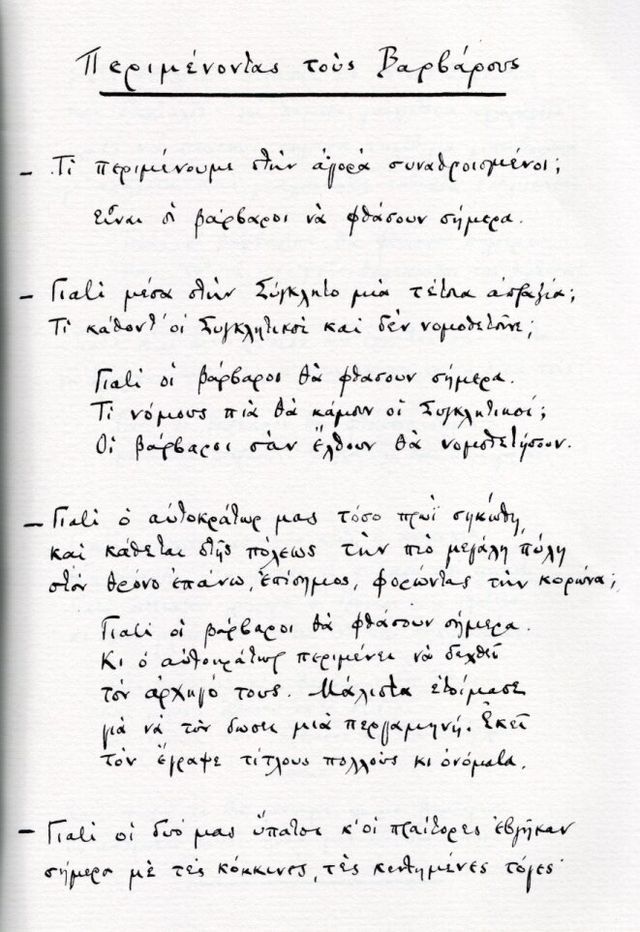 Περιμένοντας τοὺς Βαρβάρους
– Τί περιμένουμε στὴν ἀγορὰ συναθροισμένοι;
Εἶναι οἱ βάρβαροι νὰ φθάσουν σήμερα.
– Γιατὶ μέσα στὴν Σύγκλητο μιὰ τέτοια ἀπραξία;
Τί κάθοντ' οἱ Συγκλητικοὶ καὶ δὲν νομοθετοῦνε;
Γιατὶ οἱ βάρβαροι θὰ φθάσουν σήμερα.
Τί νόμους πιὰ θὰ κάμουν οἱ Συγκλητικοί;
Οἱ βάρβαροι σὰν ἔλθουν θὰ νομοθετήσουν.
– Γιατὶ ὁ αὐτοκράτωρ μας τόσο πρωῒ σηκώθη,
καὶ κάθεται στῆς πόλεως τὴν πιὸ μεγάλη πύλη
στὸν θρόνο ἐπάνω, ἐπίσημος, φορώντας τὴν κορώνα;
Γιατὶ οἱ βάρβαροι θὰ φθάσουν σήμερα.
Κι ὁ αὐτοκράτωρ περιμένει νὰ δεχθεῖ
τὸν ἀρχηγό τους. Μάλιστα ἑτοίμασε
γιὰ νὰ τὸν δώσει μιὰ περγαμηνή. Ἐκεῖ
τὸν ἔγραψε τίτλους πολλοὺς κι ὀνόματα.
– Γιατὶ οἱ δυό μας ὕπατοι κ' οἱ πραίτορες ἐβγῆκαν
σήμερα μὲ τὲς κόκκινες, τὲς κεντημένες τόγες·